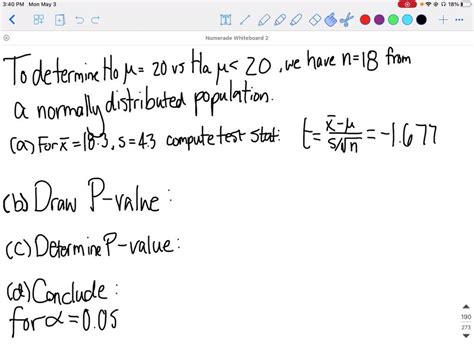 3:40 PM Mon May 3
18%
Numerade Whiteboard 2
To determine Ho μ = 20 vs Ha μ < 20, we have n=18 from
a normally distributed population.
(a) For x̄ = 18.3, s = 4.3 compute test stat: t = x̄-μ / s/√n = -1.677
(b) Draw P-value:
(c) Determine P-value:
(d) Conclude:
for α = 0.05
190
273